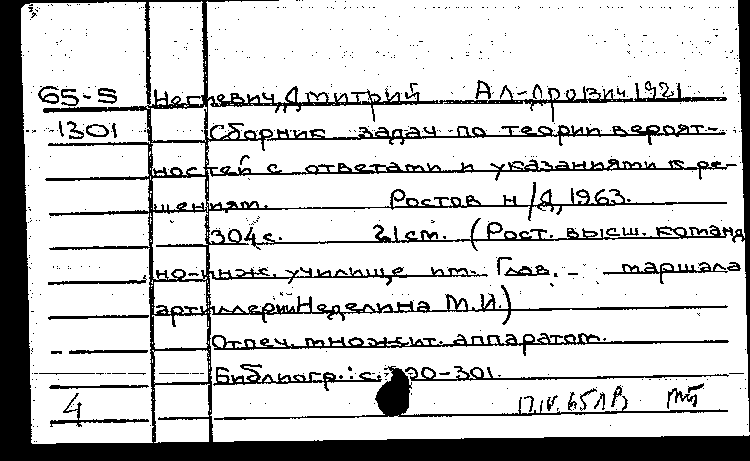 65-5 Дмитрий Ал-дрович 1921
1301 Сборник задач по теории вероят-
ностей с ответами и указаниями к ре-
шениям. Ростов н/Д, 1963.
304 с. 21 см. (Рост. высш. команд
но-инж. училище им. Глав. - маршала
артиллерии Неделина М.И.)
Отпеч. множит. аппаратом.
Библиогр.: с. 300-301.
4 17.IV.65 ЛВ